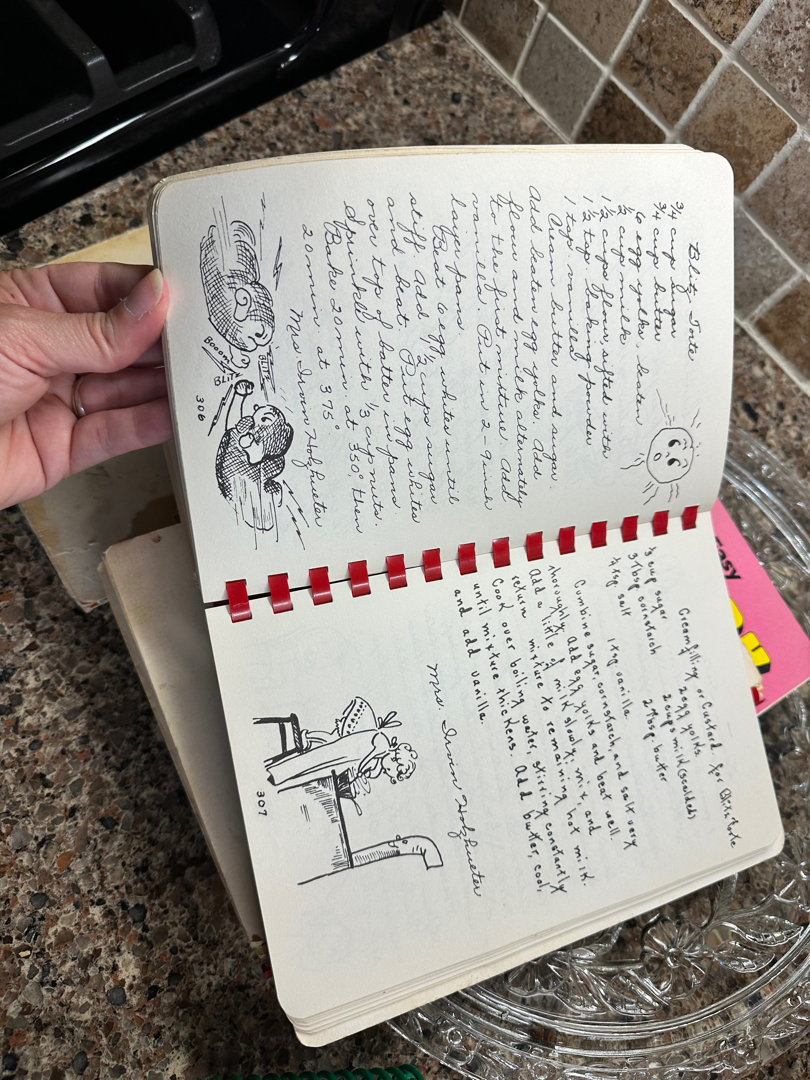 Blitz Torte
3/4 cup sugar
3/4 cup butter
6 egg yolks, beaten
1/2 cup milk
1 1/2 cups flour, sifted with
1 1/2 tsp. baking powder
1 tsp. vanilla
Cream butter and sugar.
Add beaten egg yolks. Add
flour and milk alternately
to the first mixture. Add
vanilla. Put in 2-9 inch
layer pans.
Beat 6 egg whites until
stiff. Add 1 1/2 cups sugar
and beat. Put egg whites
over top of batter in pans
Sprinkle with 1/3 cup nuts.
Bake 20 min. at 350° then
20 min. at 375°
Mrs. Irvin Holzhueter
BLITZ
BOOOM
BLITZ
306
Cream filling or Custard for Blitz torte
1/3 cup sugar 2 egg yolks
3 Tbsp cornstarch 2 cups milk (scalded)
1/4 tsp salt 2 Tbsp butter
1 tsp vanilla
Combine sugar, cornstarch, and salt very
thoroughly. Add egg yolks and beat well.
Add a little of milk slowly; mix, and
return mixture to remaining hot milk.
Cook over boiling water, stirring constantly
until mixture thickens. Add butter, cool,
and add vanilla.
Mrs. Irvin Holzhueter
307